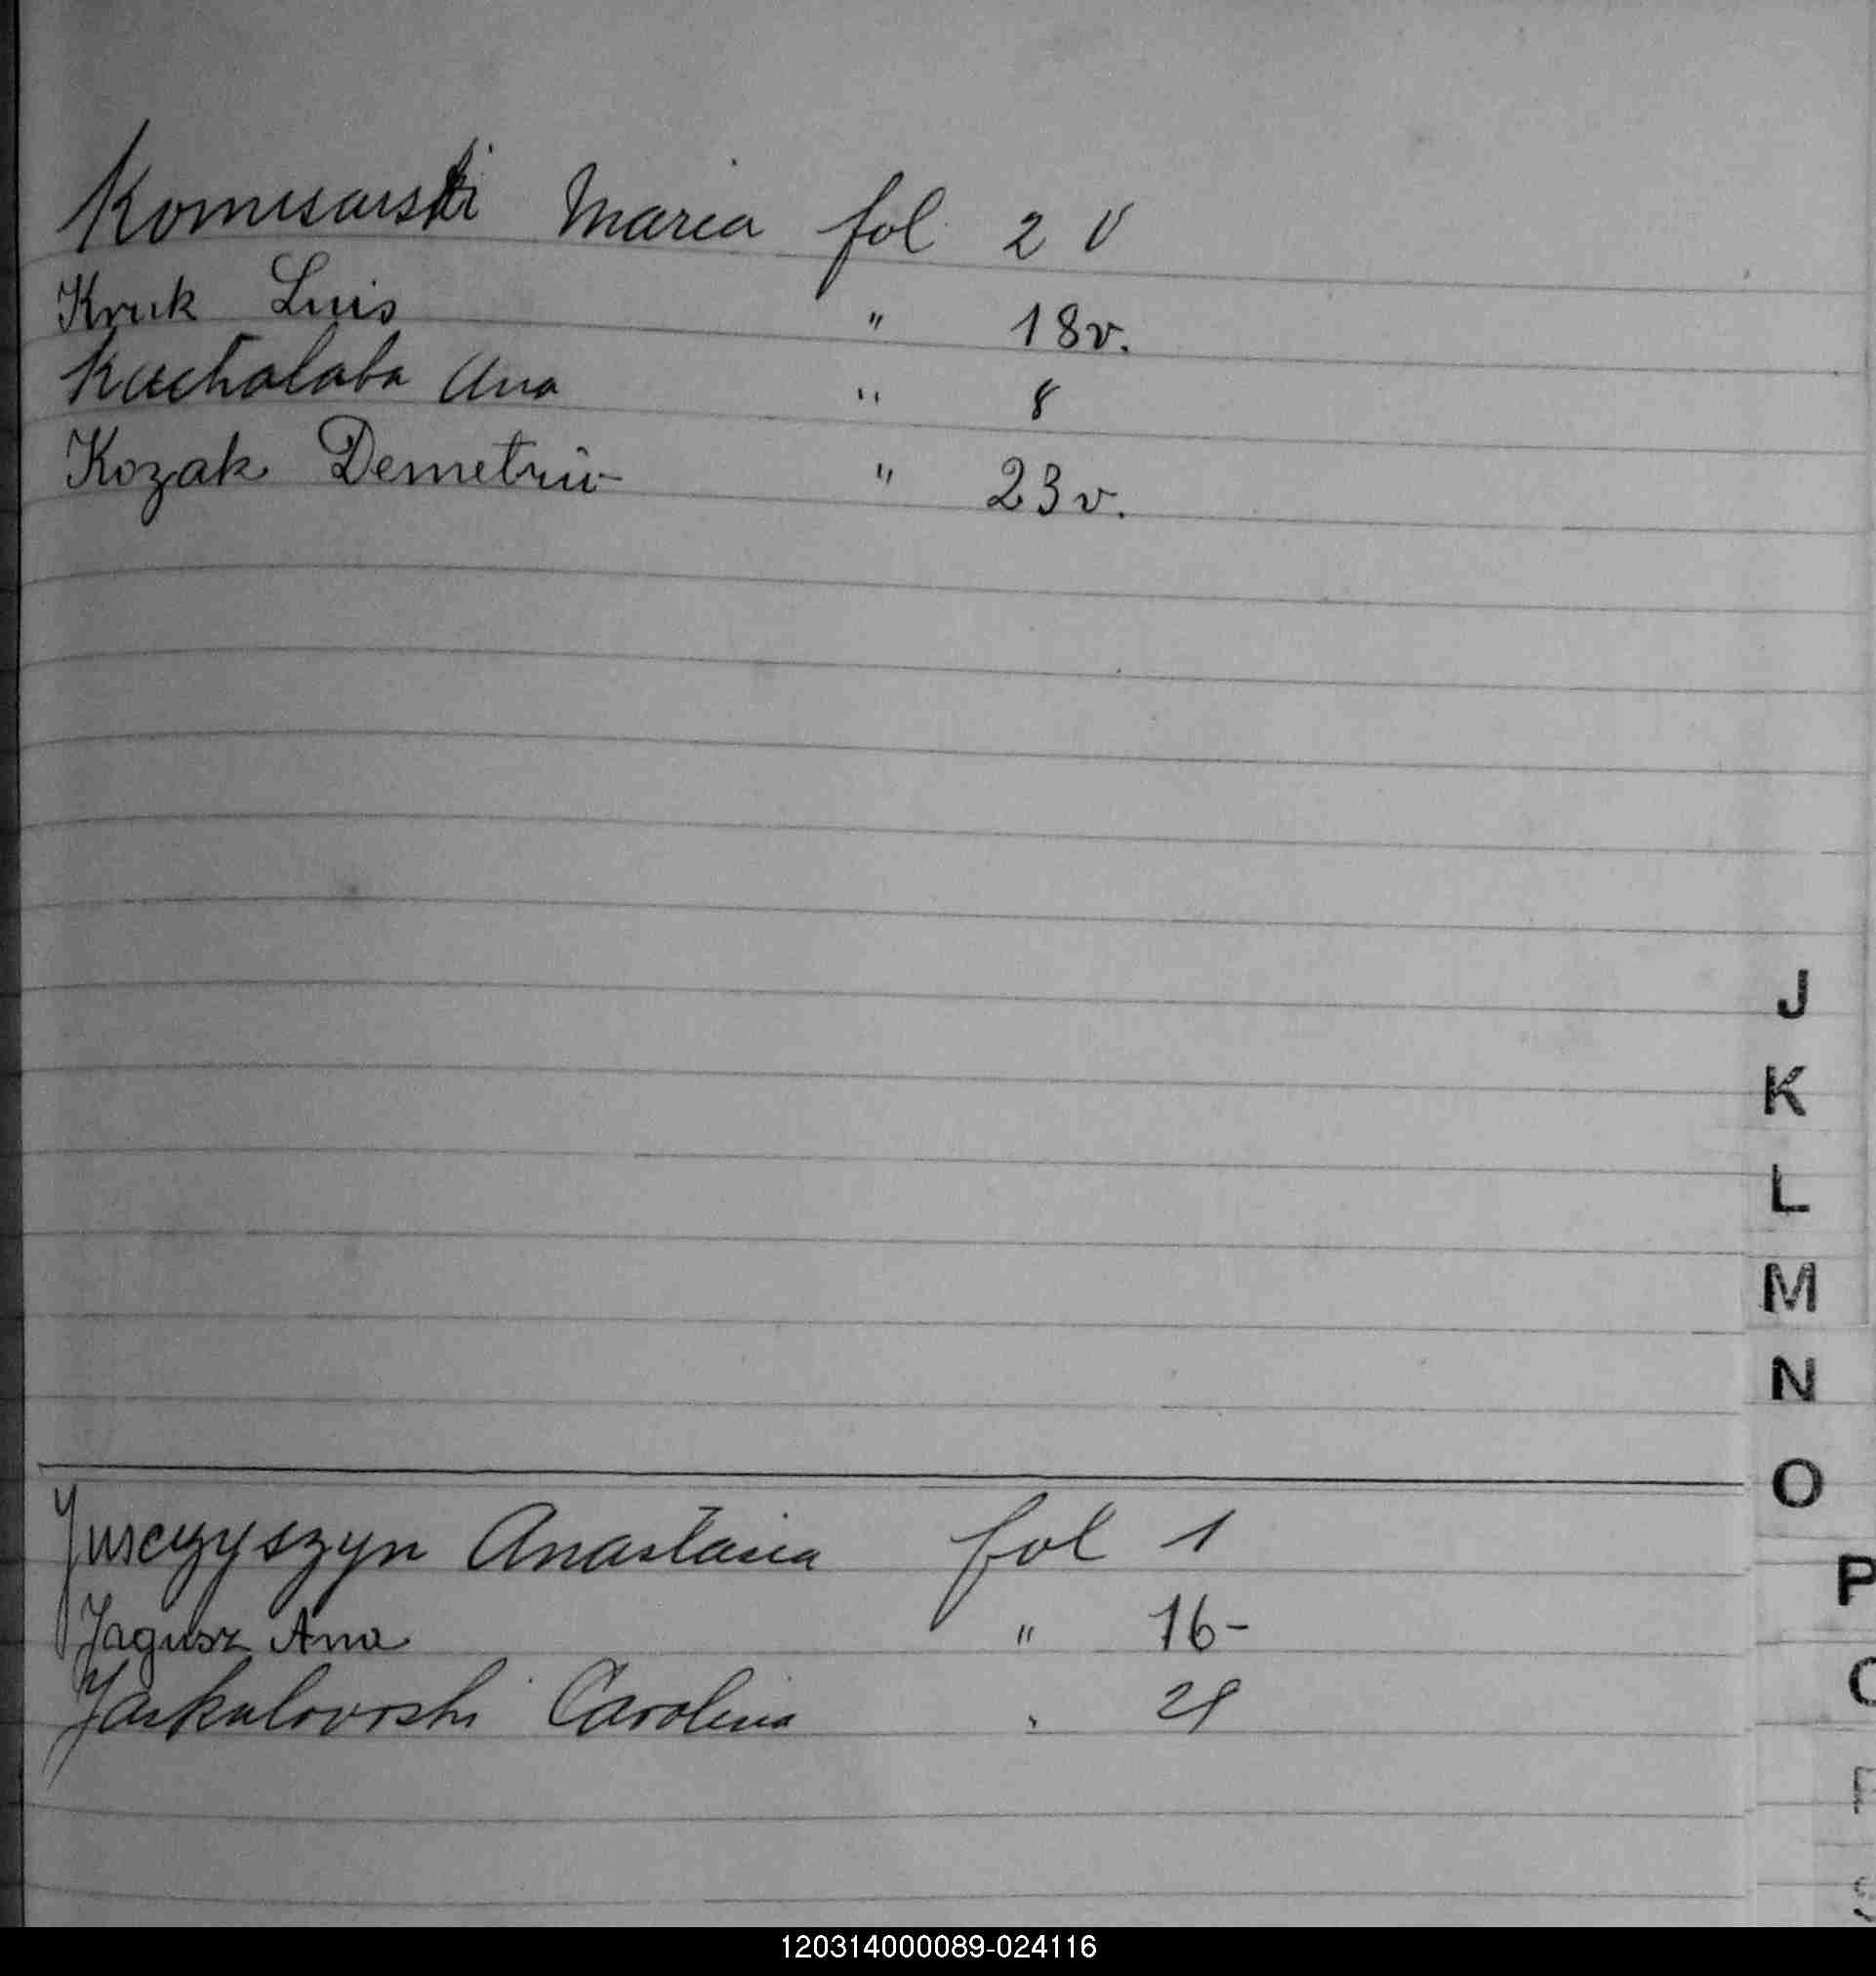 Komisarski Maria fol 2 v
Kruk Luis " 18v.
Kachalaba Ana " 8
Kozak Demetrio " 23v.
J
K
L
M
N
O
Jurczyszyn Anastasia fol 1
P
Jagusz Ana " 16-
Jaskulowski Carolina
120314000089-024116